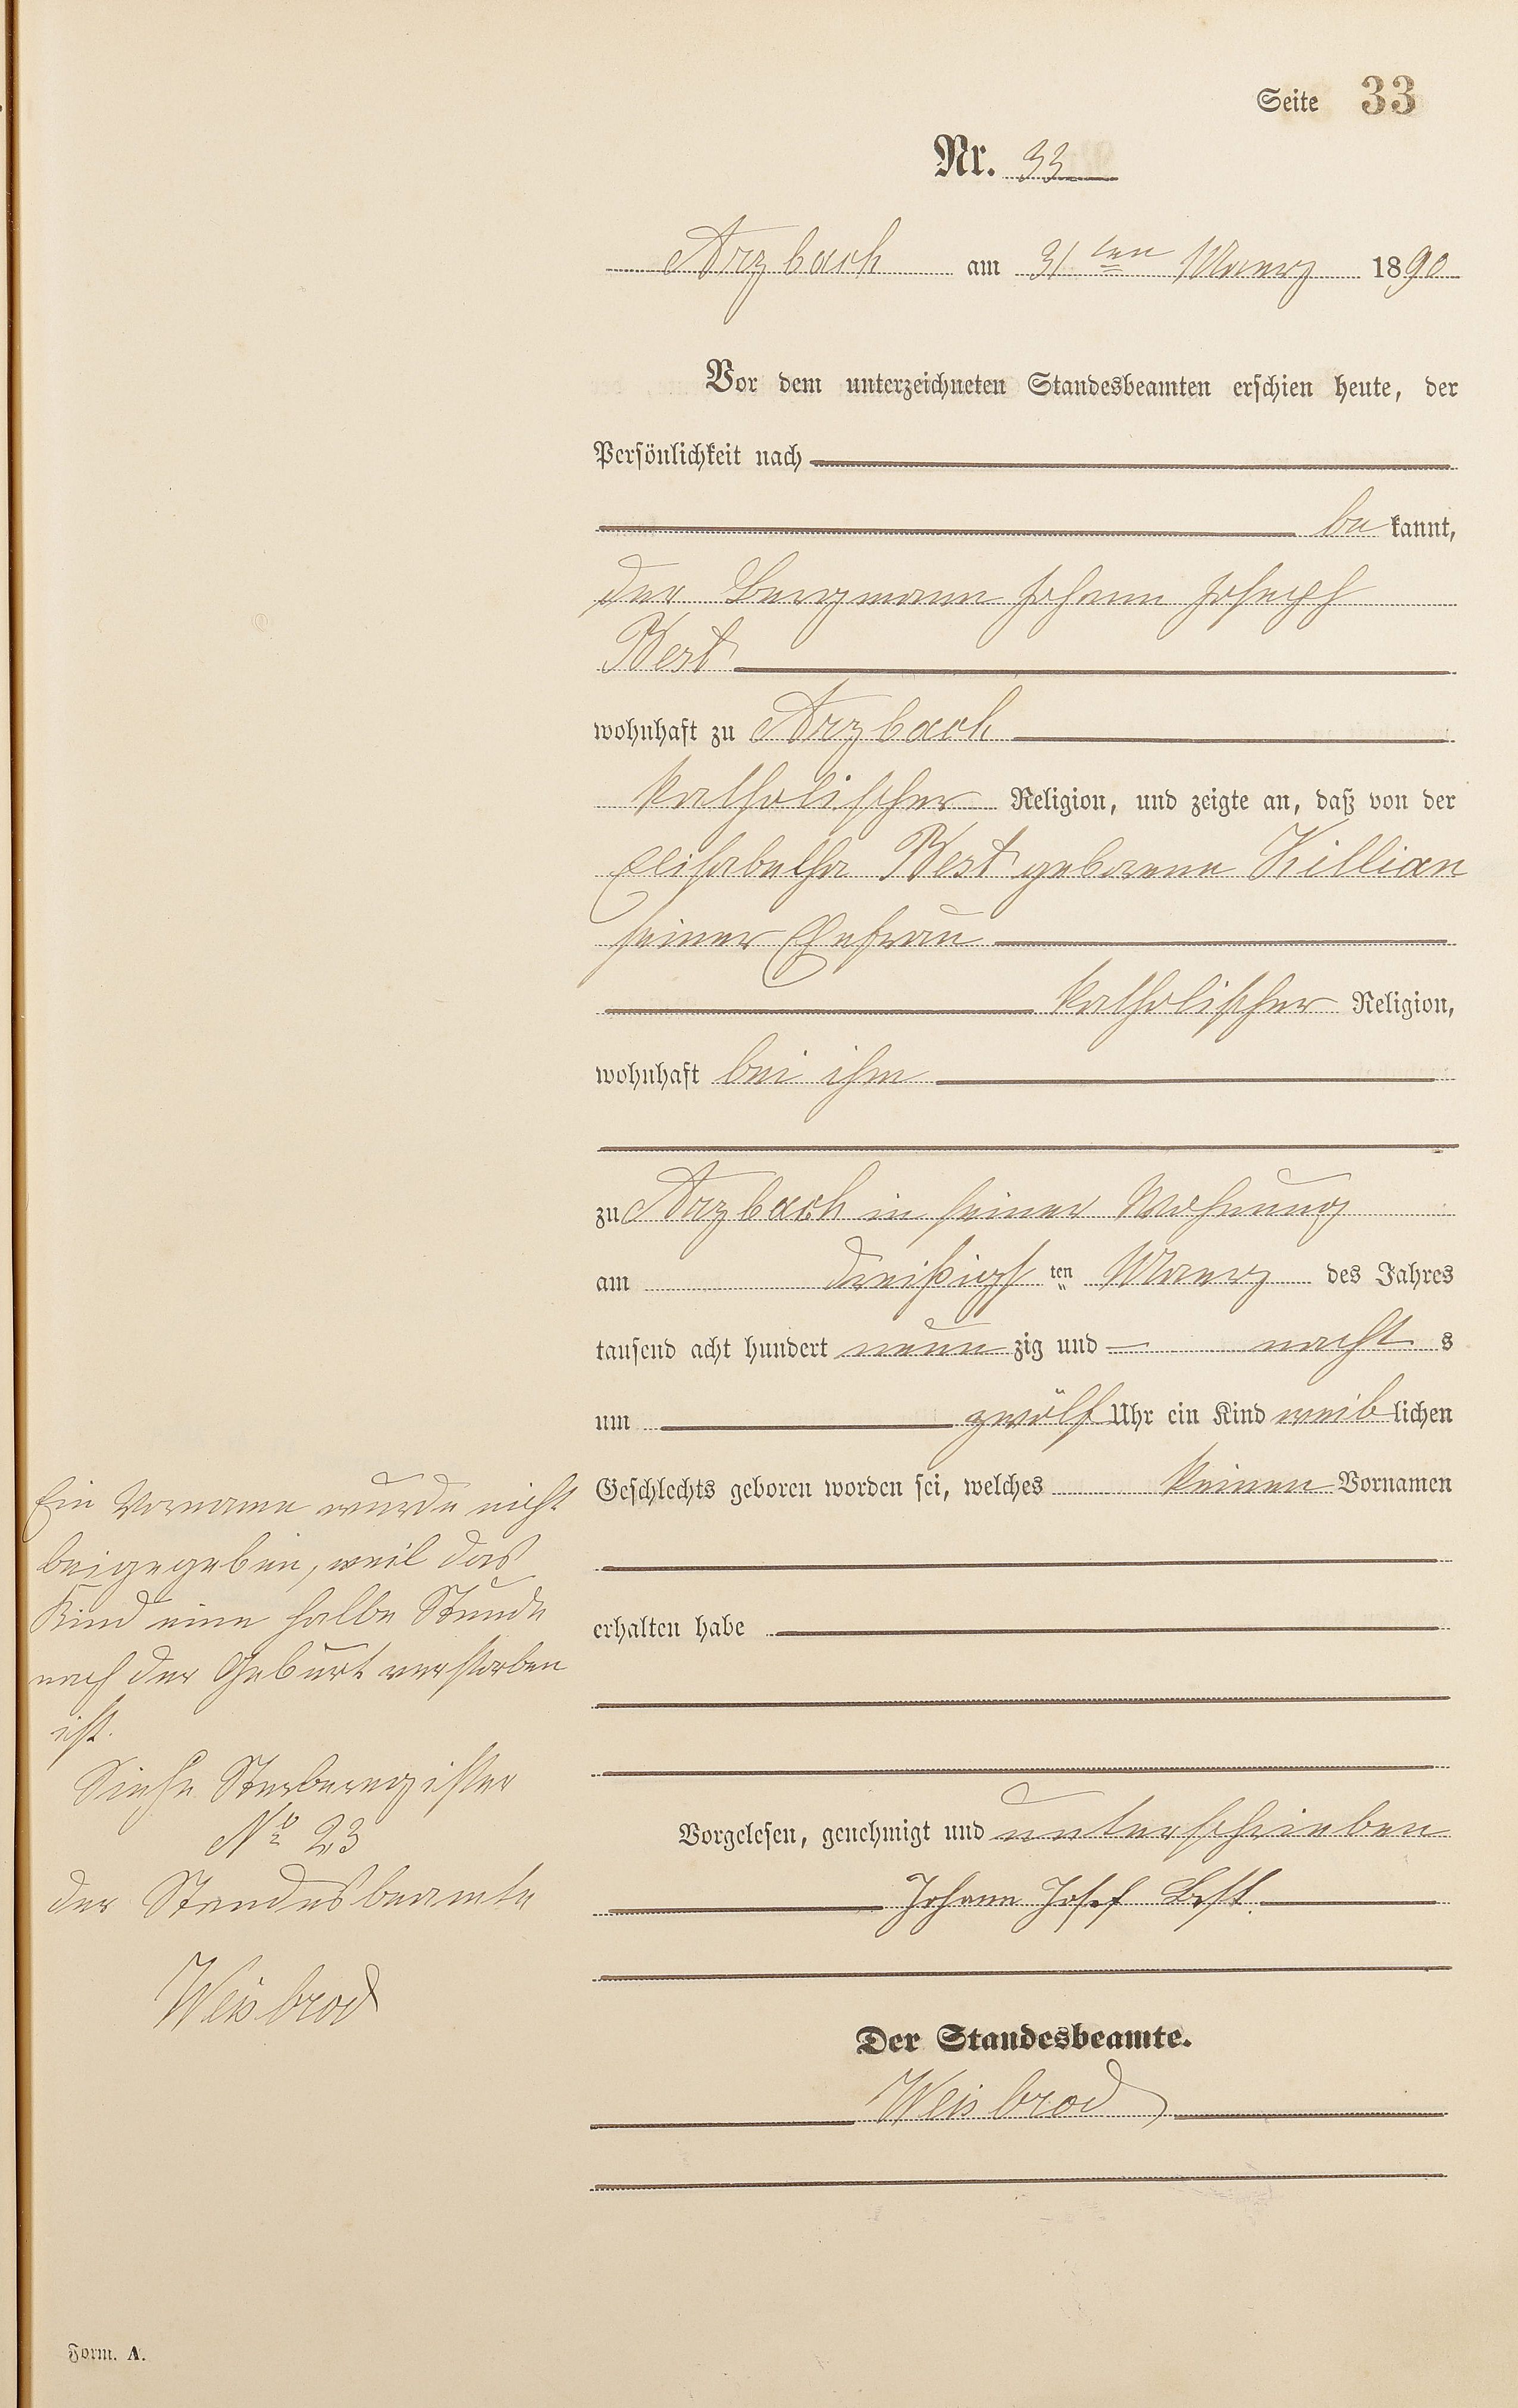 Seite 33
Nr. 33
Arzbach am 31ten Maerz 1890
Vor dem unterzeichneten Standesbeamten erschien heute, der
Persönlichkeit nach
be kannt,
der Bergmann Johann Joseph
Best
wohnhaft zu Arzbach
katholischer Religion, und zeigte an, daß von der
Elisabetha Best geborene Killian
seiner Ehefrau
katholischer Religion,
wohnhaft bei ihm
zu Arzbach in seiner Wohnung
am dreißigst ten Maerz des Jahres
tausend acht hundert neun zig und — nacht s
um zwölf Uhr ein Kind weib lichen
Geschlechts geboren worden sei, welches keinen Vornamen
erhalten habe
Ein Vorname wurde nicht
beigegeben, weil das
Kind eine halbe Stunde
nach der Geburt verstorben
ist.
Siehe Sterberegister
No 23
der Standesbeamte
Weisbrod
Vorgelesen, genehmigt und unterschrieben
Johann Josef Best
Der Standesbeamte.
Weisbrod
Form. A.